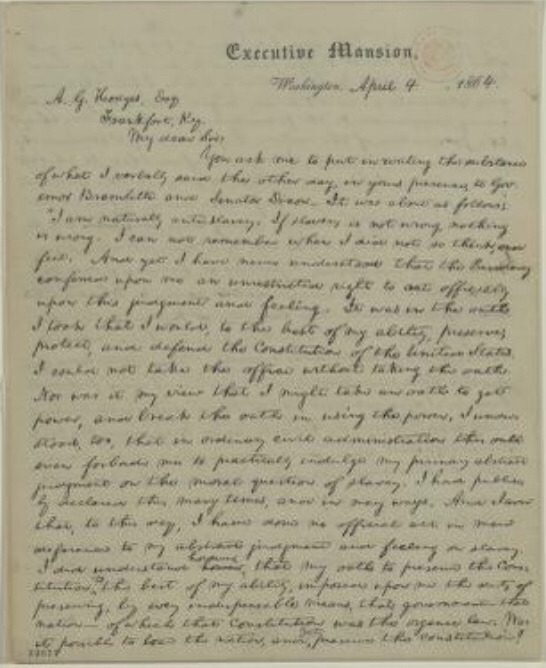 Executive Mansion,
Washington, April 4, 1864.
A. G. Hodges, Esq
Frankfort, Ky.
My dear Sir:
You ask me to put in writing the substance
of what I verbally said the other day, in your presence, to Gov-
ernor Bramlette and Senator Dixon. It was about as follows:
"I am naturally anti-slavery. If slavery is not wrong, nothing
is wrong. I can not remember when I did not so think, and
feel. And yet I have never understood that the Presidency
conferred upon me an unrestricted right to act officially
upon this judgment and feeling. It was in the oath
I took that I would, to the best of my ability, preserve,
protect, and defend the Constitution of the United States.
I could not take the office without taking the oath.
Nor was it my view that I might take an oath to get
power, and break the oath in using the power. I under-
stood, too, that in ordinary civil administration this oath
even forbade me to practically indulge my primary abstract
judgment on the moral question of slavery. I had public-
ly declared this many times, and in many ways. And I aver
that, to this day, I have done no official act in mere
deference to my abstract judgment and feeling on slavery.
I did understand however, that my oath to preserve the Con-
stitution to the best of my ability, imposed upon me the duty of
preserving, by every indispensable means, that government that
nation of which that Constitution was the organic law. Was
it possible to lose the nation, and yet preserve the constitution?